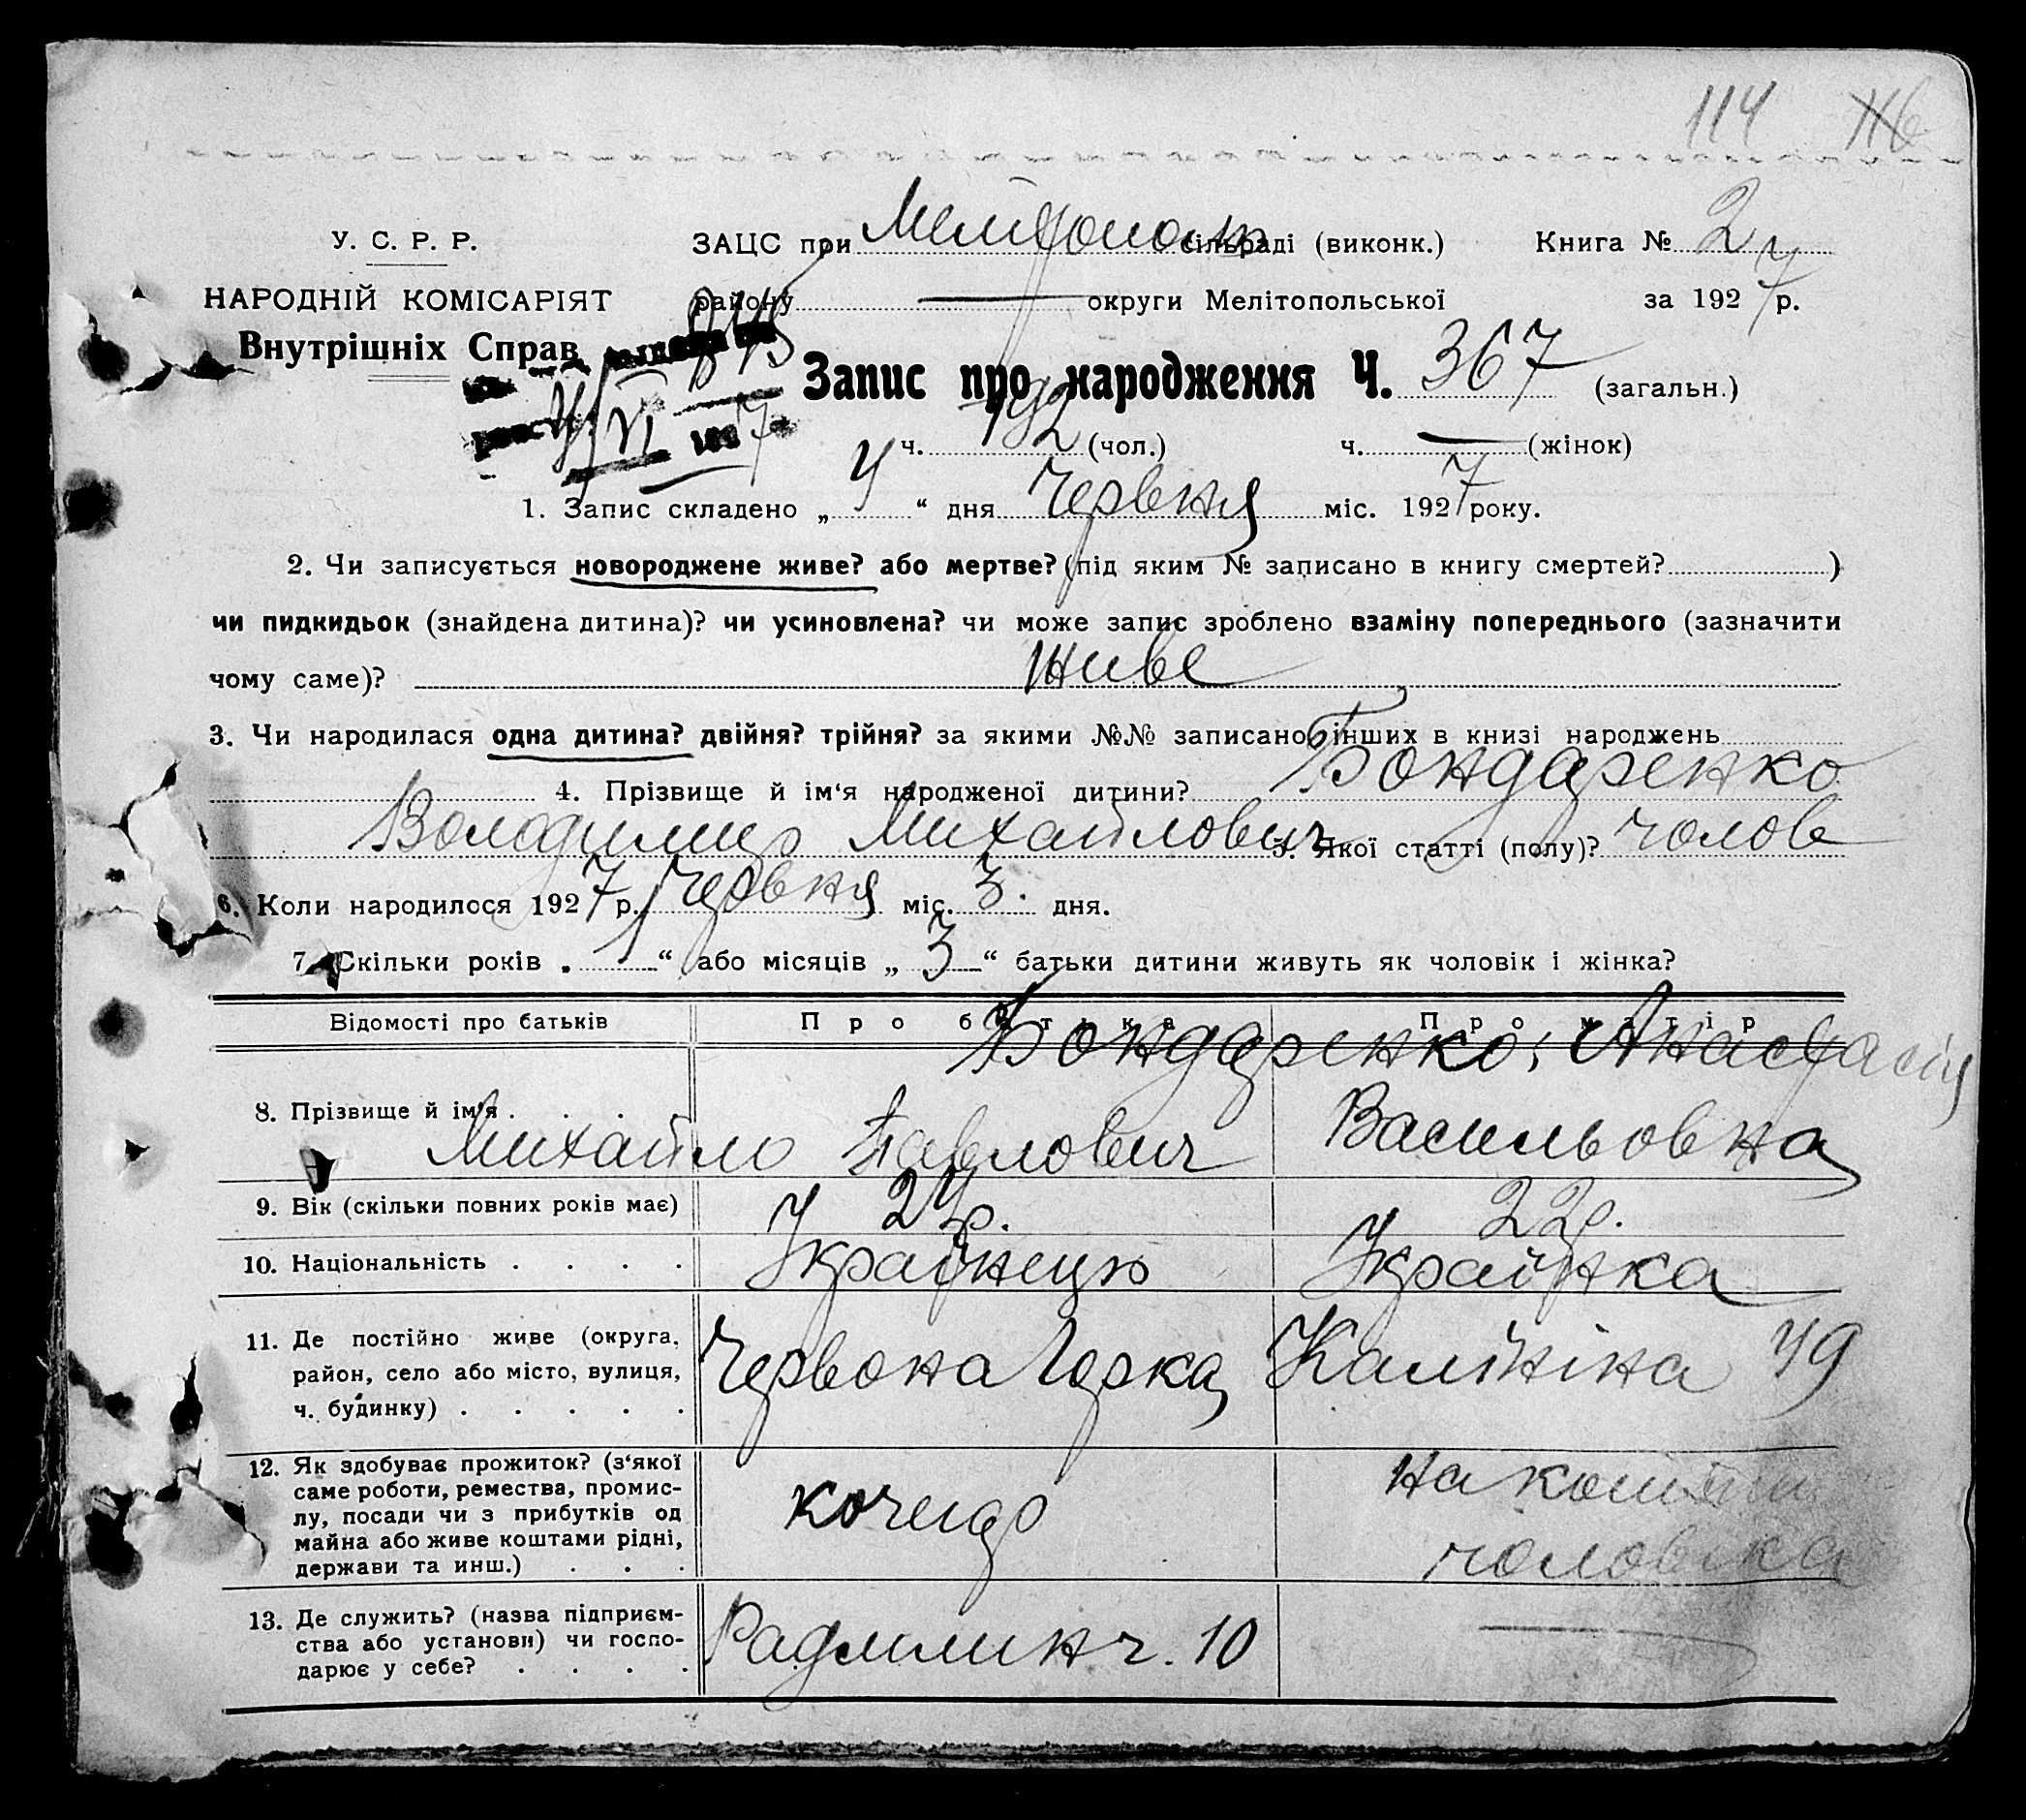 114 116
У. С. Р. Р. ЗАЦС при Мелітополь сільраді (виконк.) Книга № 2
НАРОДНІЙ КОМІСАРІЯТ району — округи Мелітопольської за 1927 р.
Внутрішніх Справ
Запис про народження Ч. 367 (загальн.)
4/VI 7
ч. 192 (чол.) ч. — (жінок)
1. Запис складено „ 4 “ дня Червня міс. 1927 року.
2. Чи записується новороджене живе? або мертве? (під яким № записано в книгу смертей? )
чи пидкидьок (знайдена дитина)? чи усиновлена? чи може запис зроблено взаміну попереднього (зазначити
чому саме)? живе
3. Чи народилася одна дитина? двійня? трійня? за якими №№ записано інших в книзі народжень
4. Прізвище й ім‘я народженої дитини? Бондаренко
Володимир Михайлович 5. Якої статті (полу)? чолов
6. Коли народилося 1927 р. Червня міс. 3. дня.
7. Скільки років „ 1 “ або місяців „ 3 “ батьки дитини живуть як чоловік і жінка?
Відомості про батьків Про батька Про матір
Бондаренко, Анастасія
8. Прізвище й ім‘я . . . .
Михайло Павлович Васильовна
9. Вік (скільки повних років має) 24 р. 22 р.
10. Національність . . . . Українець Українка
11. Де постійно живе (округа,
район, село або місто, вулиця, Червона Горка Калініна 49
ч. будинку) . . . . .
12. Як здобуває прожиток? (з‘якої
саме роботи, ремества, промис-
лу, посади чи з прибутків од
майна або живе коштами рідні,
держави та инш.) . . .
кочегар на кошти
чоловіка
13. Де служить? (назва підприєм-
ства або установи) чи госпо-
дарює у себе? . . . .
Радмлин ч. 10 —